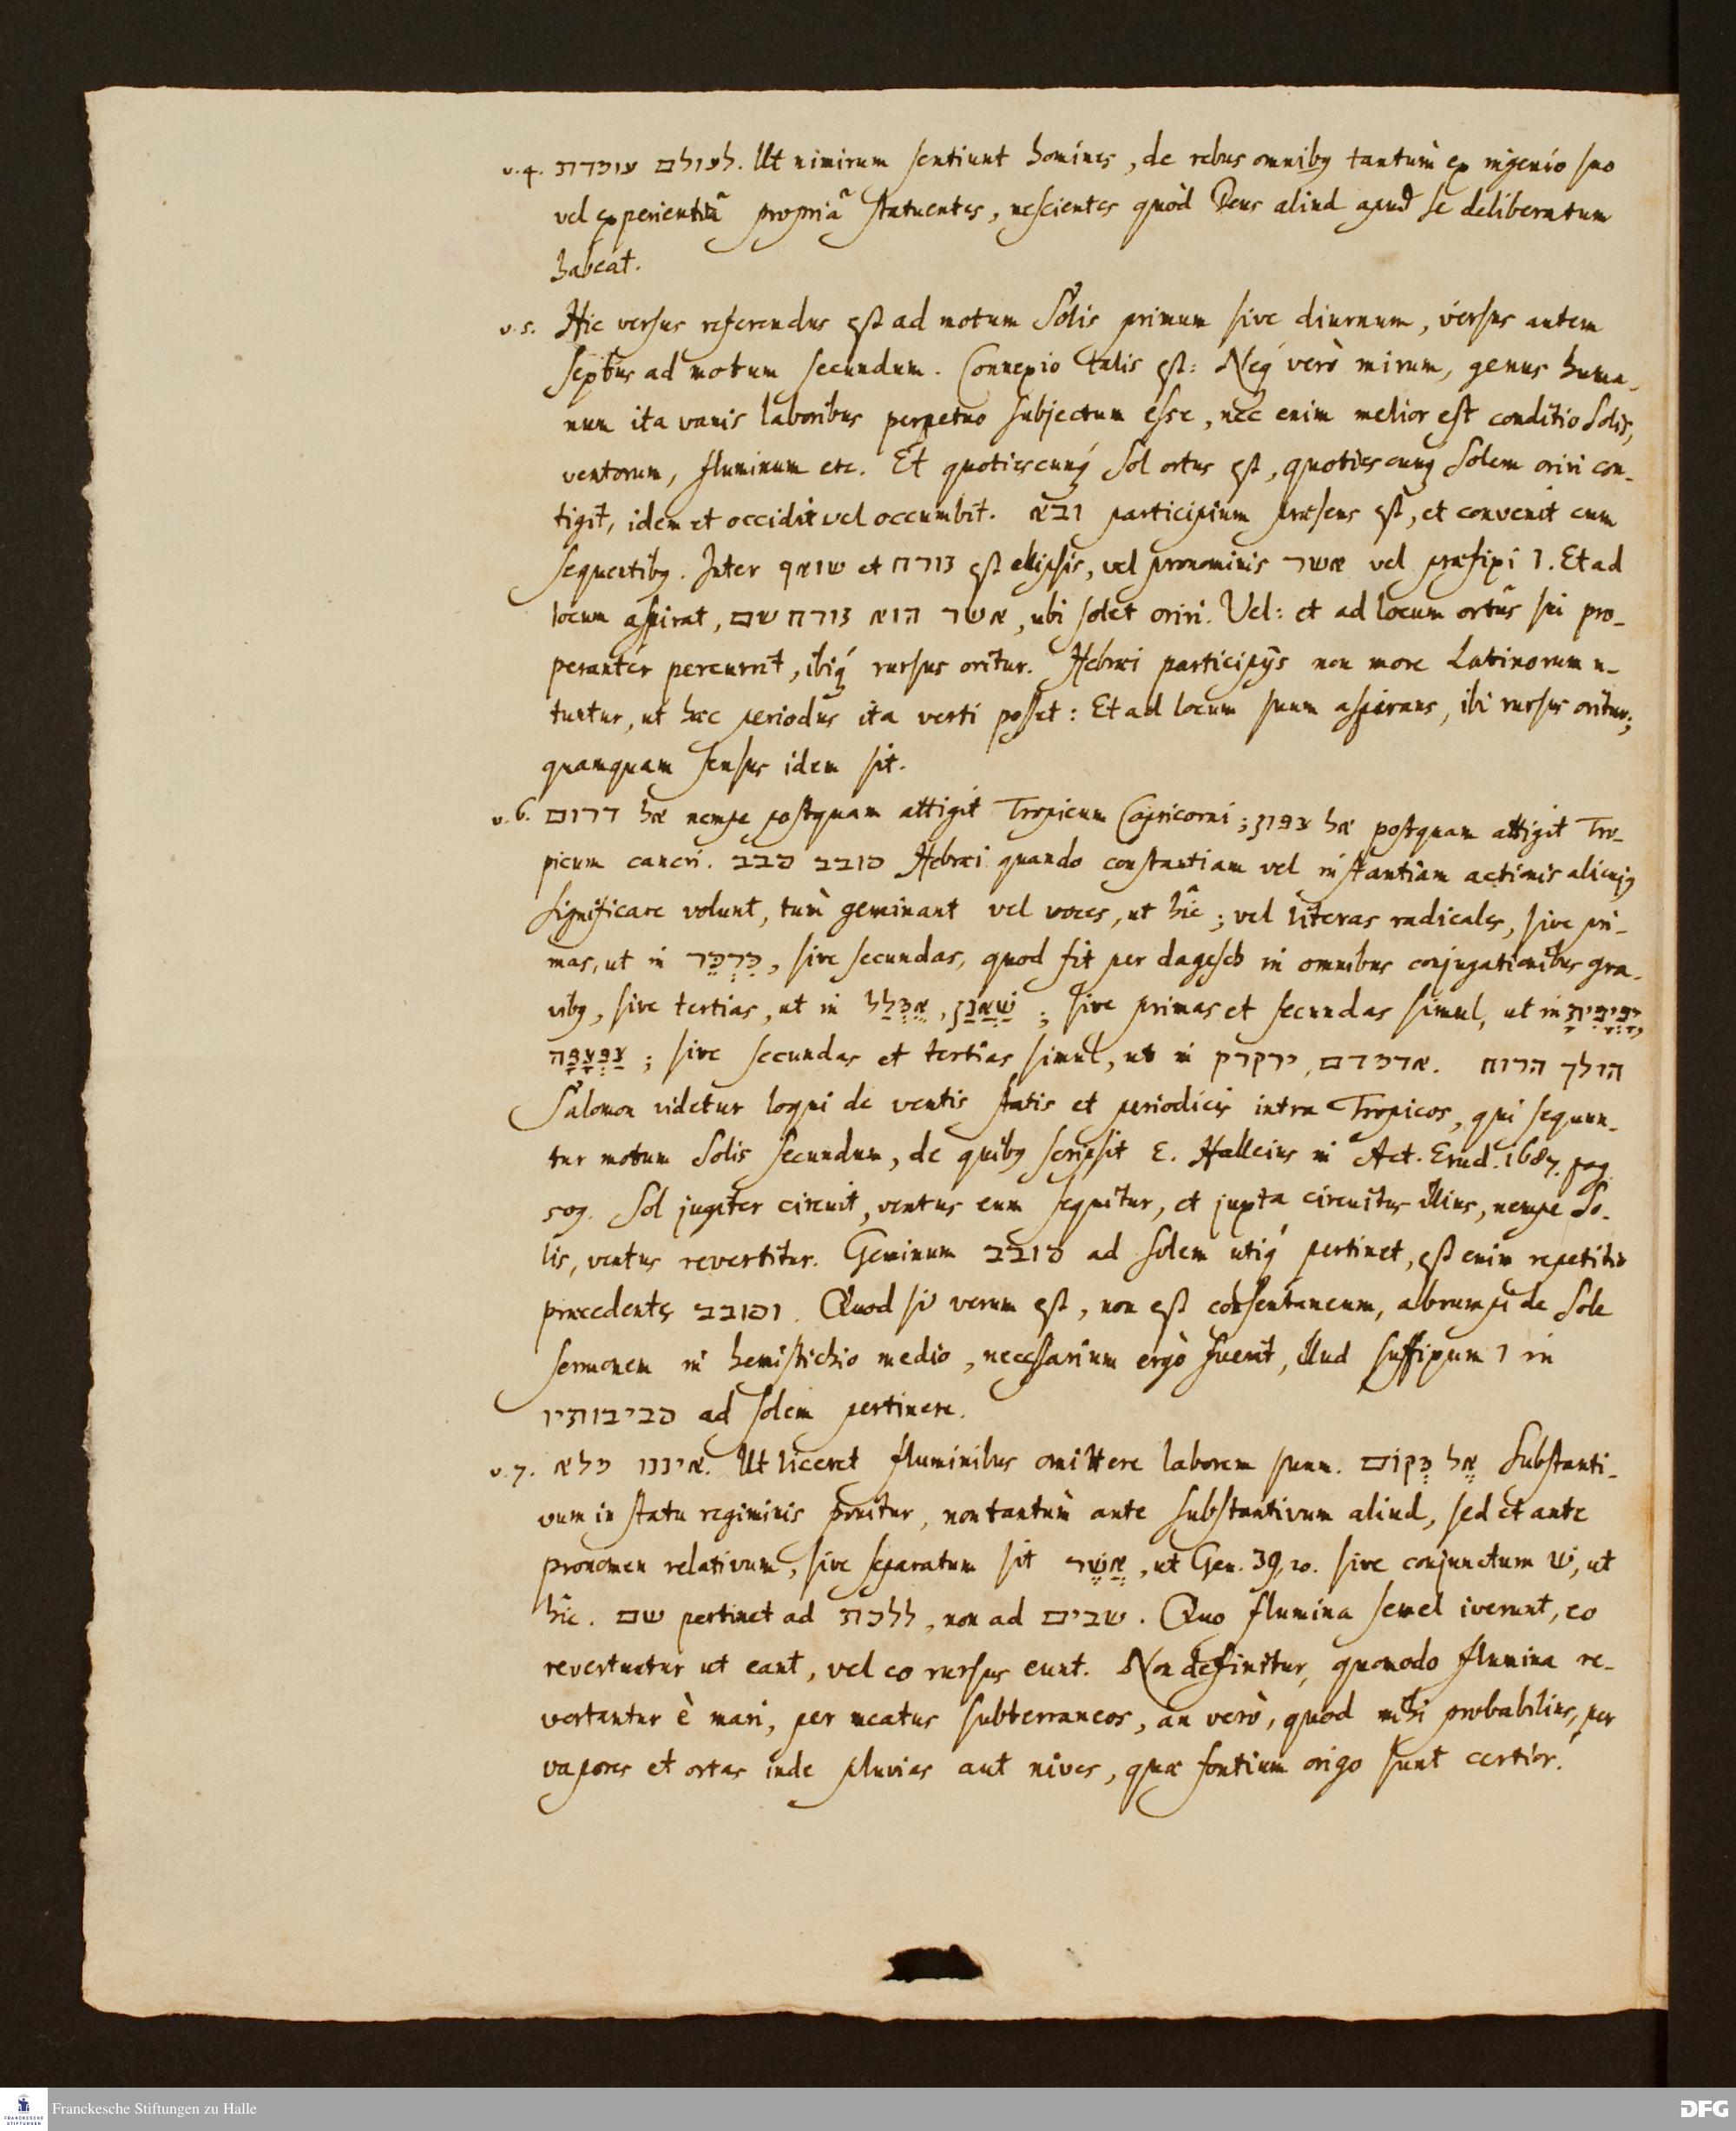 v. 4. לעולם עומדת. Ut nimirum sentiunt homines, de rebus omnibq tantùm ex ingenio suo
vel experientiâ propriâ statuentes, nescientes quòd Deus aliud apud se deliberatum
habeat.
v. 5. Hic versus referendus est ad motum Solis primum sive diurnum, versus autem
sextus ad motum secundum. Connexio talis est: Neq́ verò mirum, genus huma-
num ita vanis laboribus perpetuo subjectum esse, nec enim melior est conditio Solis,
ventorum, fluminum etc. Et quotiescunq́ Sol ortus est, quotiescunq Solem oriri con-
tigit, idem et occidit vel occumbit. ובא participium præsens est, et convenit cum
sequentibq. Inter שואף et זורח est ellipsis, vel pronominis אשר vel præfixi ו. Et ad
locum aspirat, אשר הוא זורח שם, ubi solet oriri. Vel: et ad locum ortûs sui pro-
peranter percurrit, ibiq́ rursus oritur. Hebræi participijs non more Latinorum u-
tuntur, ut hæc periodus ita verti posset: Et ad locum suum aspirans, ibi rursus oritur;
quamquam sensus idem sit.
v. 6. אל דרום nempe postquam attigit Tropicum Capricorni; אל צפון postquam attigit Tro-
picum cancri. סובב סבב Hebræi quando constantiam vel instantiam actionis alicujq
significare volunt, tùm geminant vel voces, ut hîc; vel literas radicales, sive pri-
mas, ut in כִּרְכֵּר, sive secundas, quod fit per dagesch in omnibus conjugationibus gra-
vibq, sive tertias, ut in שַׁאֲנַן, אֻמְלַל; sive primas et secundas simul, ut in יְפֵיפִית,
צַפְצָפָה; sive secundas et tertias simul, ut in אדמדם, ירקרק. הולך הרוח
Salomon videtur loqui de ventis statis et periodicis intra Tropicos, qui sequun-
tur motum Solis secundum, de quibq scripsit E. Halleius in Act. Erud. 1687. pag.
509. Sol jugiter circuit, ventus eum sequitur, et juxta circuitus illius, nempe So-
lis, ventus revertitur. Geminum סובב ad Solem utiq́ pertinet, est enim repetitio
præcedentis וסובב. Quod si verum est, non est consentaneum, abrumpi de Sole
sermonem in hemistichio medio, necessarium ergò fuerit, illud suffixum ו in
סביבותיו ad solem pertinere.
v. 7. איננו מלא. Ut liceret fluminibus omittere laborem suum. אֶל מְקוֹם Substanti-
vum in statu regiminis ponitur, non tantùm ante substantivum aliud, sed et ante
pronomen relativum, sive separatum sit אֲשֶׁר, ut Gen. 39, 20. sive conjunctum שׁ, ut
hîc. שם pertinet ad ללכת, non ad שבים. Quo flumina semel iverunt, eo
revertuntur ut eant, vel eo rursus eunt. Non definitur, quomodo flumina re-
vertantur è mari, per meatus subterraneos, an verò, quod mihi probabilius, per
vapores et ortas inde pluvias aut nives, quæ fontium origo sunt certior.
Franckesche Stiftungen zu Halle
FRANCKESCHE
STIFTUNGEN
DFG